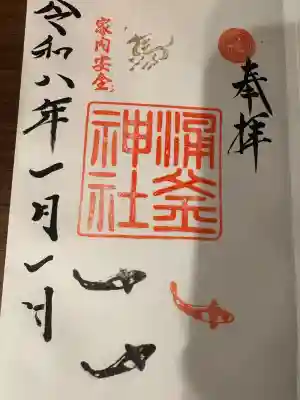 奉拝
涌釜
神社
家内安全
令和八年一月一日